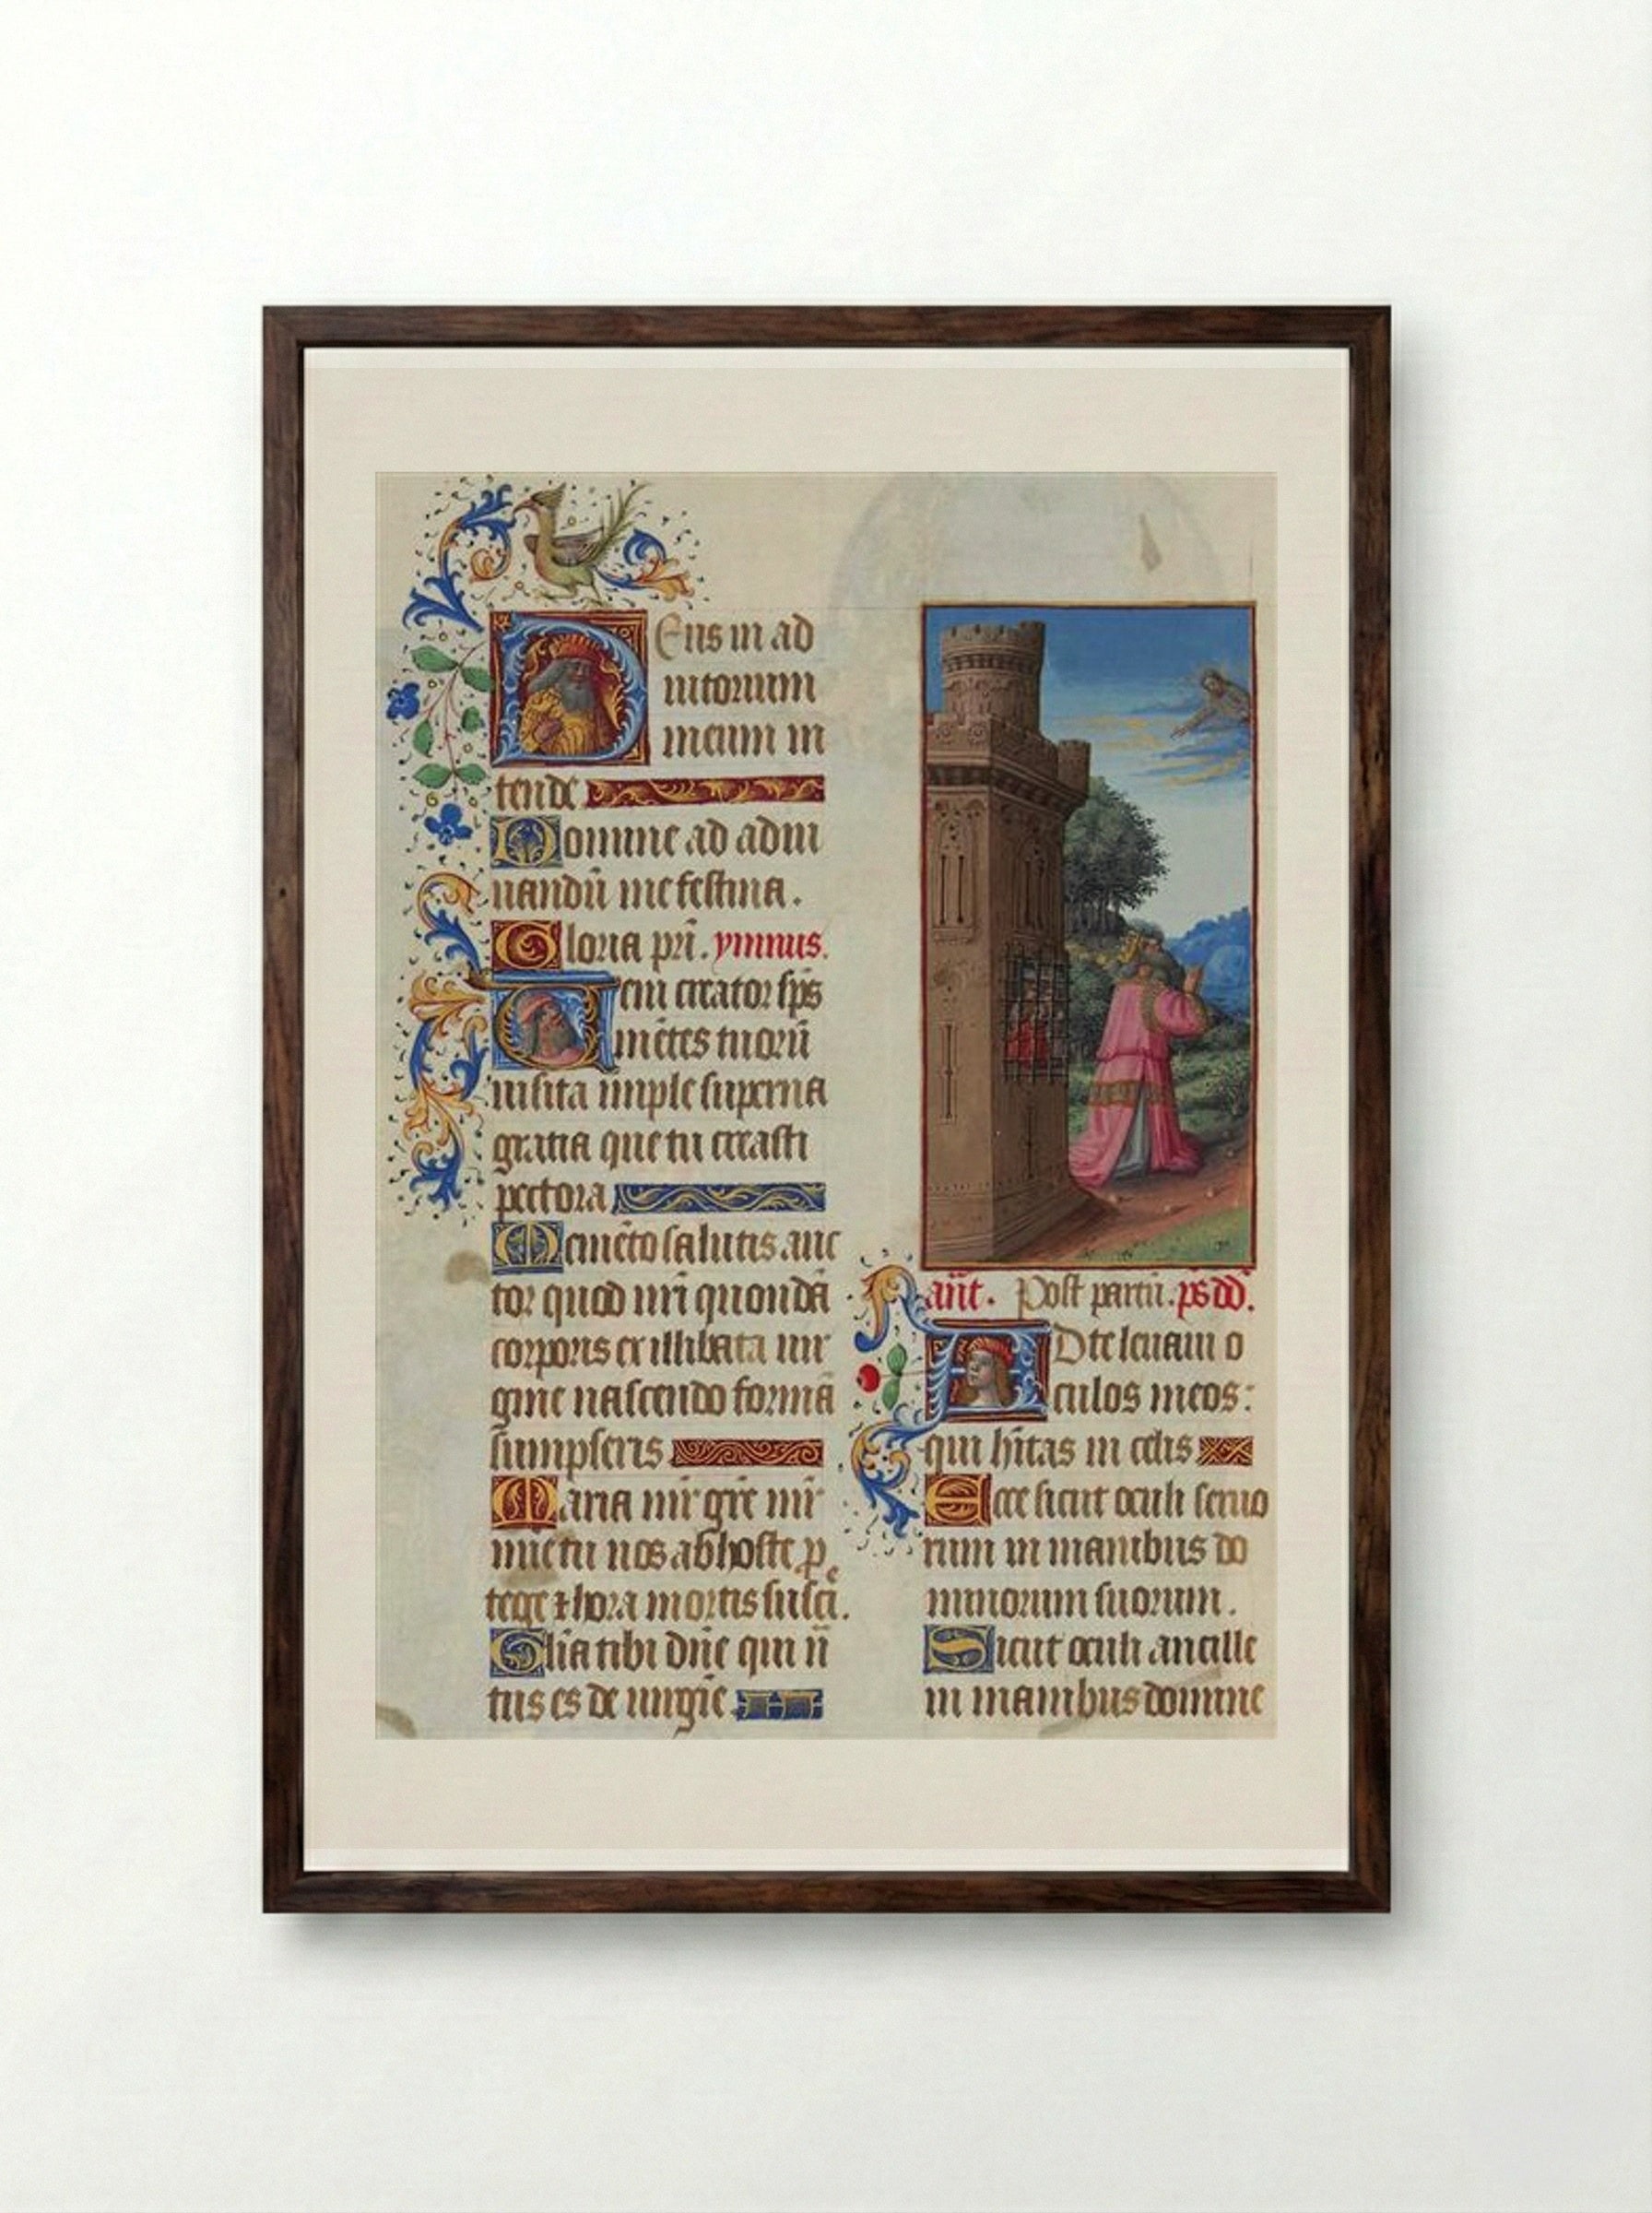 Deus in ad
iutorium
meum in
tende
Domine ad adiu
uandū me festina.
Gloria pr̄i. ymnus.
Veni creator sp̄s
mētes tuorū
uisita imple superna
gratia que tu creasti
pectora
Memēto salutis auc
tor quod nr̄i quondā
corporis ex illibata uir
gine nascendo formā
sumpseris
Maria mr̄ gr̄e mr̄
mīe tu nos ab hoste p
tege ⁊ hora mortis susci.
Glīa tibi dn̄e qui n̄
tus es de uirgīe
ant̄. Post partū. ps dd̄.
AD te leuaui o
culos meos:
qui hītas in celis
Ecce sicut oculi seruo
rum in manibus do
minorum suorum.
Sicut oculi ancille
in manibus domine